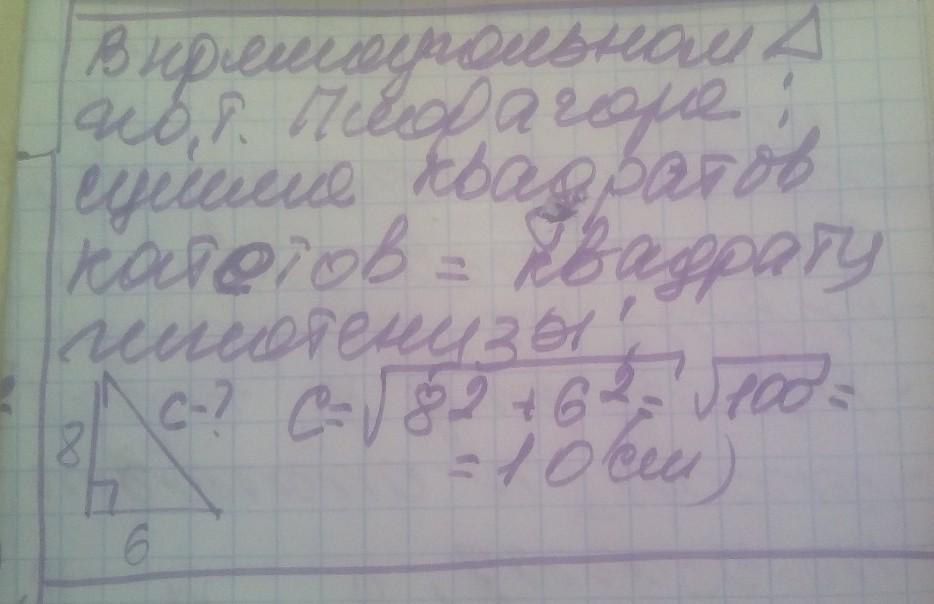 В прямоугольном △
по т. Пифагора:
сумма квадратов
катетов = квадрату
гипотенузы:
8 c-? c=√8²+6²= √100=
=10(см)
6